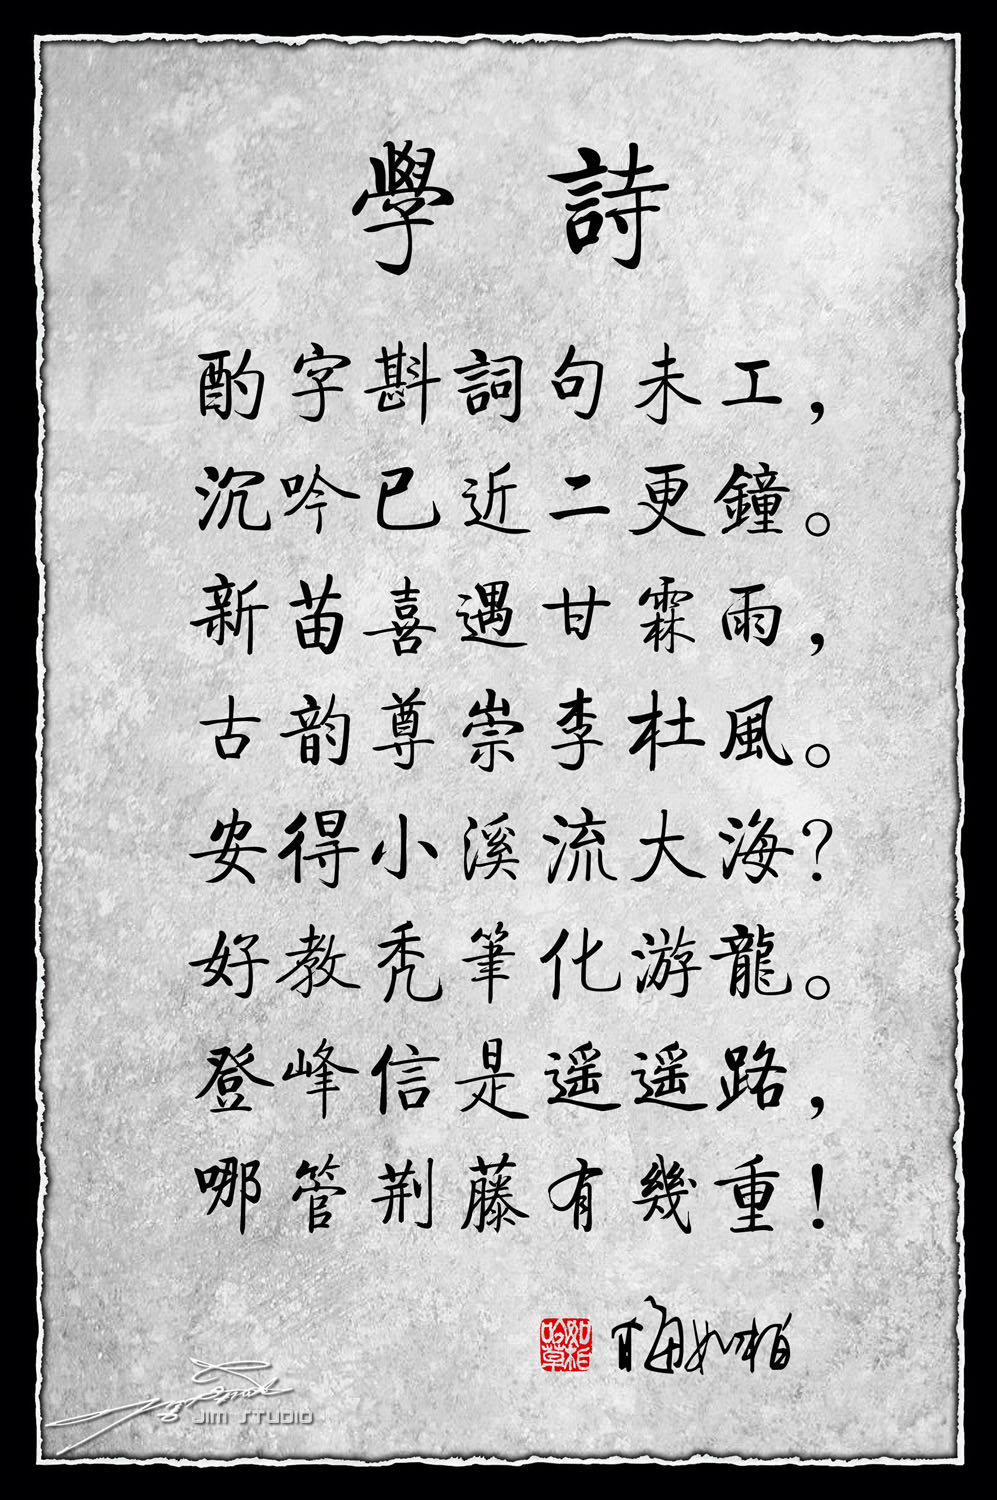 學 詩
酌字斟詞句未工，
沉吟已近二更鐘。
新苗喜遇甘霖雨，
古韵尊崇李杜風。
安得小溪流大海？
好教秃筆化游龍。
登峰信是遥遥路，
哪管荆藤有幾重！
JIM STUDIO